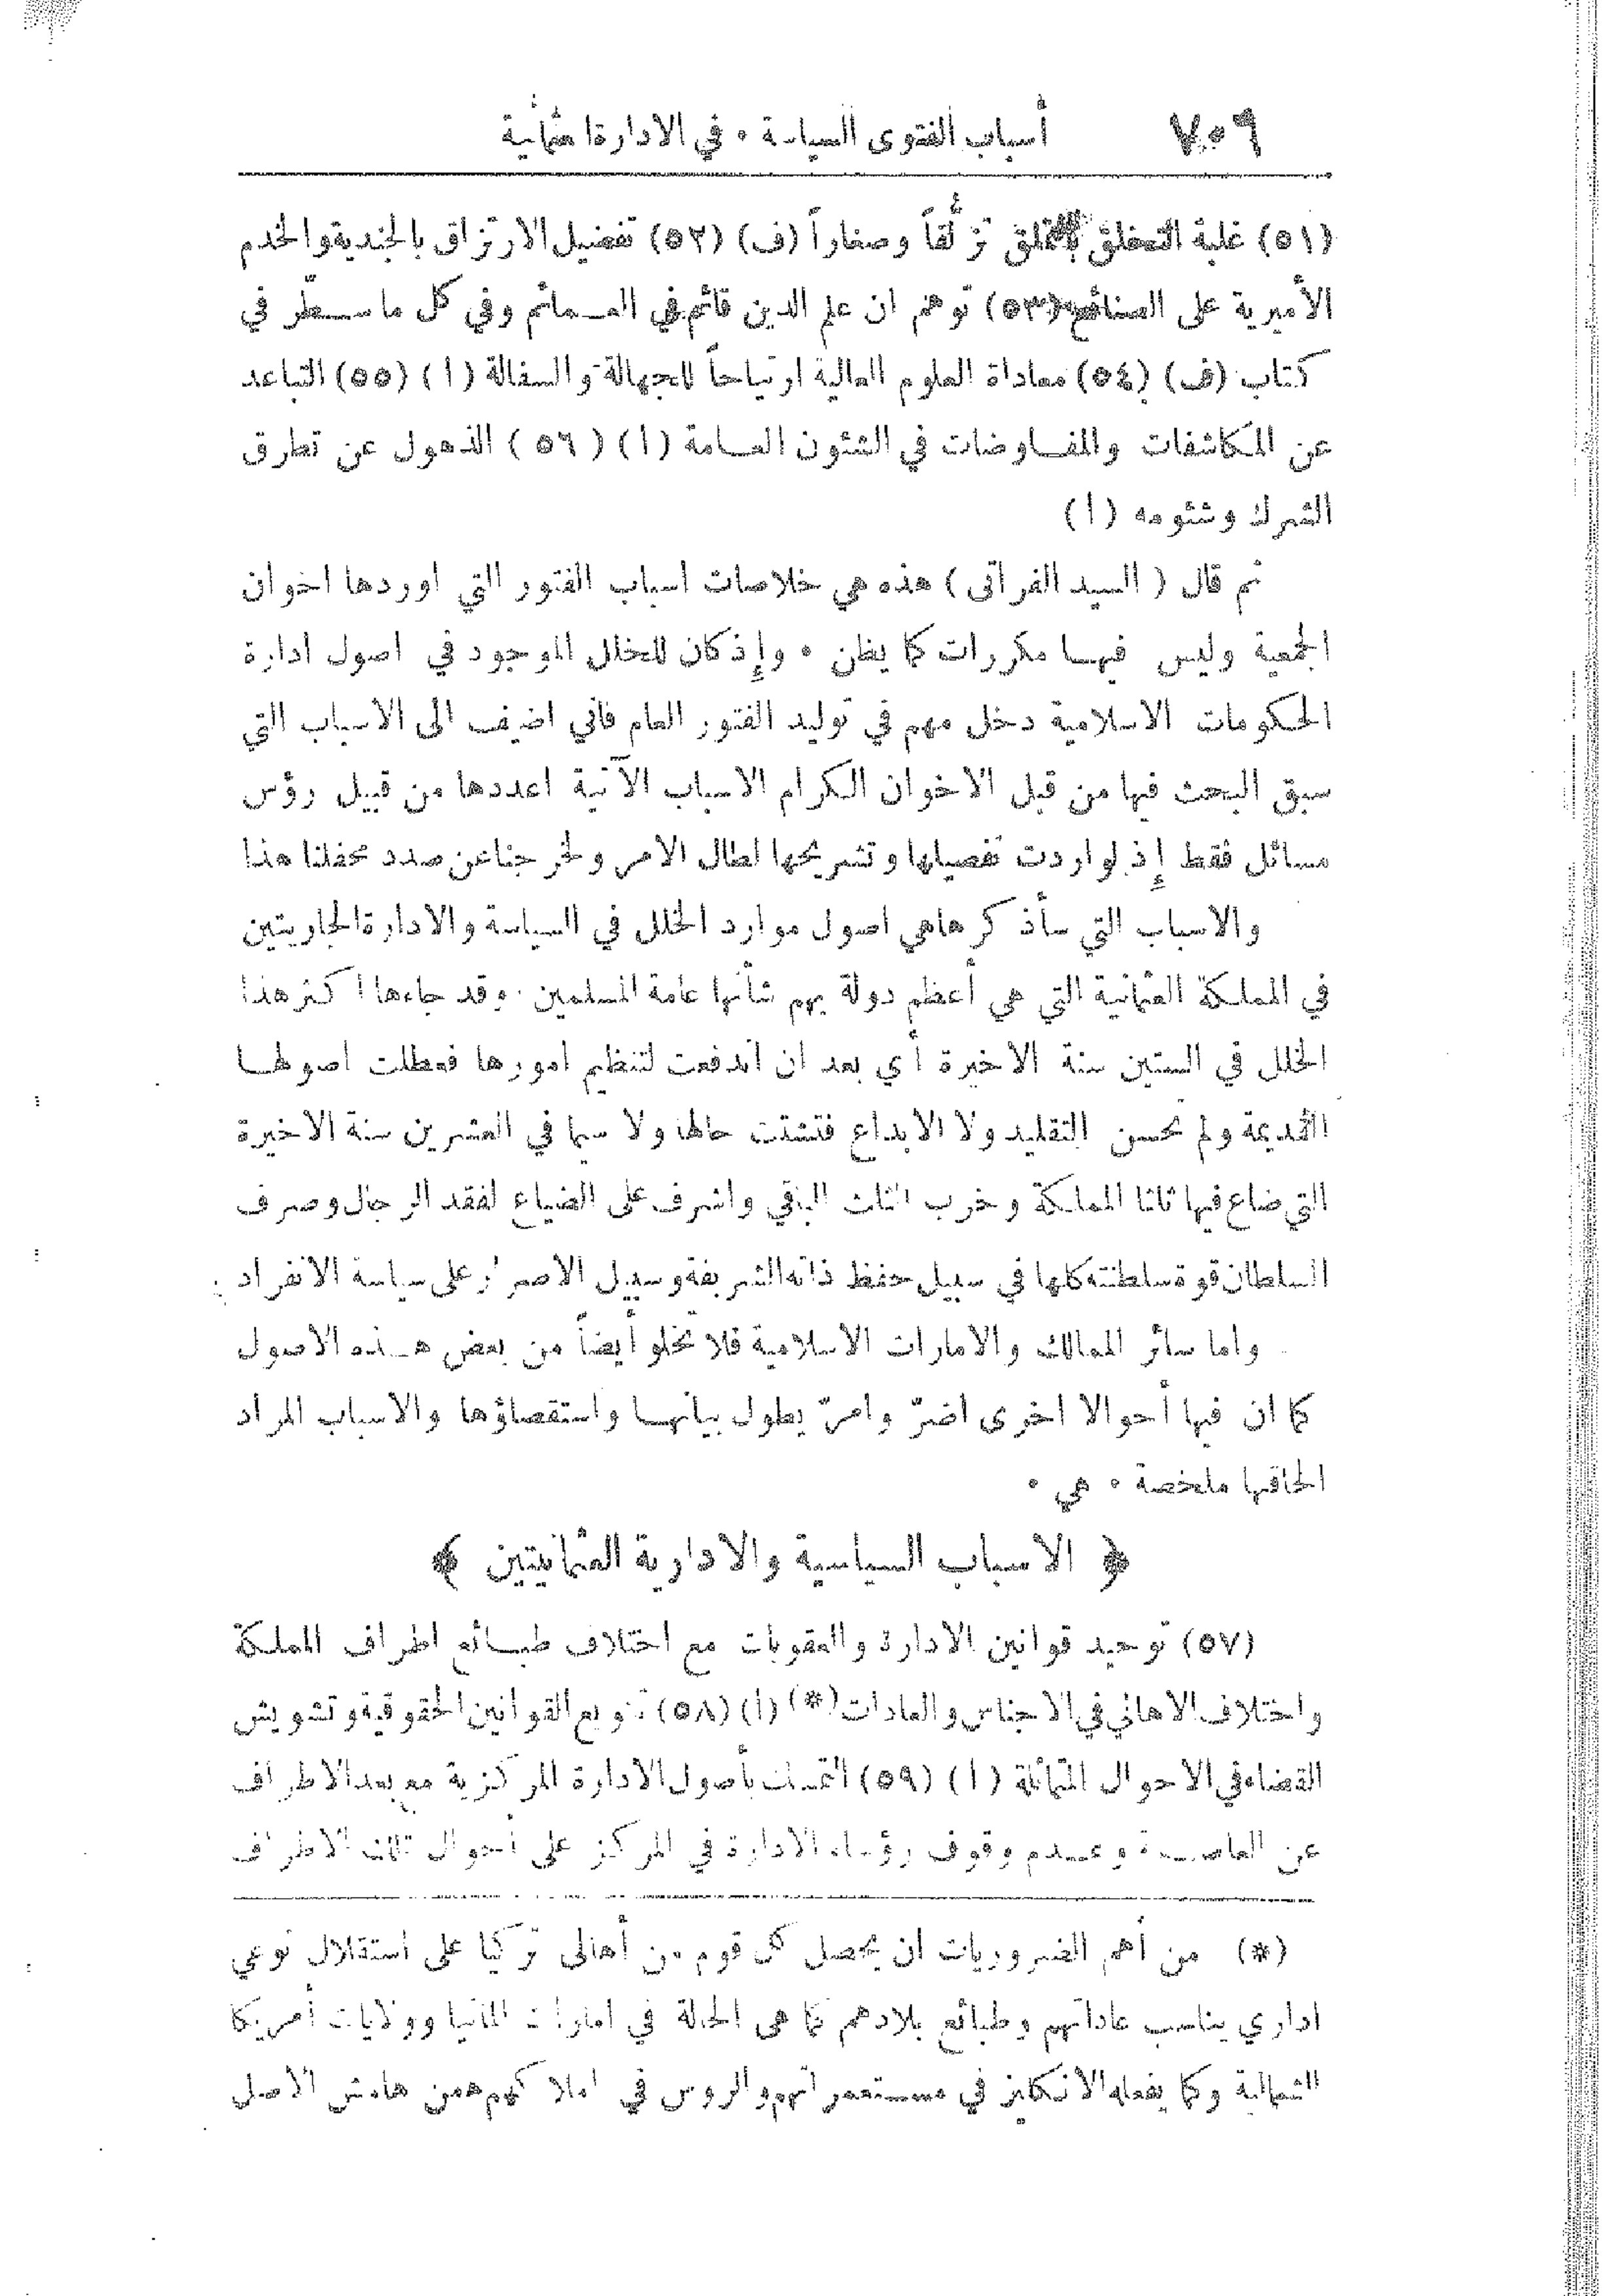 ٧٥٩ أسباب الفتوى السياسة ٠ في الادارة العثمانية
(٥١) غلبة التخلق بالتملق تزلُّفاً وصغاراً (ف) (٥٢) تفضيل الارتزاق بالجندية والخدم
الأميرية على الصنائع (٥٣) توهم ان علم الدين قائم في العمائم وفي كل ما سطّر في
كتاب (ف) (٥٤) معاداة العلوم العالية ارتياحاً للجهالة والسفالة (ا) (٥٥) التباعد
عن المكاشفات والمفاوضات في الشئون العامة (ا) (٥٦) الذهول عن تطرق
الشرك وشئومه (ا)
ثم قال (السيد الفراتى) هذه هي خلاصات اسباب الفتور التي اوردها اخوان
الجمعية وليس فيها مكررات كما يظن ٠ وإذ كان للخلل الموجود في اصول ادارة
الحكومات الاسلامية دخل مهم في توليد الفتور العام فاني اضيف الى الاسباب التي
سبق البحث فيها من قبل الاخوان الكرام الاسباب الآتية اعددها من قبيل رؤس
مسائل فقط إذ لو اردت تفصيلها وتشريحها لطال الامر ولخرجنا عن صدد محفلنا هذا
والاسباب التي سأذكرها هي اصول موارد الخلل في السياسة والادارة الجاريتين
في المملكة العثمانية التي هي أعظم دولة يهم شأنها عامة المسلمين ٠ وقد جاءها اكثر هذا
الخلل في الستين سنة الاخيرة أي بعد ان اندفعت لتنظيم امورها فعطلت اصولها
القديمة ولم تحسن التقليد ولا الابداع فتشتت حالها ولا سيما في العشرين سنة الاخيرة
التي ضاع فيها ثلثا المملكة وخرب الثلث الباقي واشرف على الضياع لفقد الرجال وصرف
السلطان قوة سلطنته كلها في سبيل حفظ ذاته الشريفة وسبيل الاصرار على سياسة الانفراد
واما سائر الممالك والامارات الاسلامية فلا تخلو أيضاً من بعض هذه الاصول
كما ان فيها أحوالا اخرى اضرّ وامرّ يطول بيانها واستقصاؤها والاسباب المراد
الحاقها ملخصة ٠ هي ٠
﴿ الاسباب السياسية والادارية العثمانيتين ﴾
(٥٧) توحيد قوانين الادارة والعقوبات مع اختلاف طبائع اطراف المملكة
واختلاف الاهالي في الاجناس والعادات (*) (ا) (٥٨) تنويع القوانين الحقوقية وتشويش
القضاء في الاحوال المتماثلة (ا) (٥٩) التمسك بأصول الادارة المركزية مع بعد الاطراف
عن العاصمة وعدم وقوف رؤساء الادارة في المركز على أحوال تلك الاطراف
(*) من أهم الضروريات ان يحصل كل قوم من أهالى تركيا على استقلال نوعي
اداري يناسب عاداتهم وطبائع بلادهم كما هى الحالة في امارات المانيا وولايات أمريكا
الشمالية وكما يفعله الانكليز في مستعمراتهم والروس في املاكهم ه من هامش الاصل